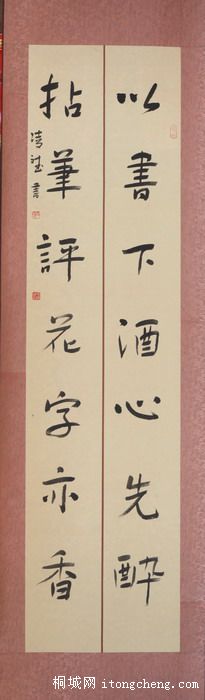 以書下酒心先醉
拈筆評花字亦香
書
桐城网 itongcheng.com